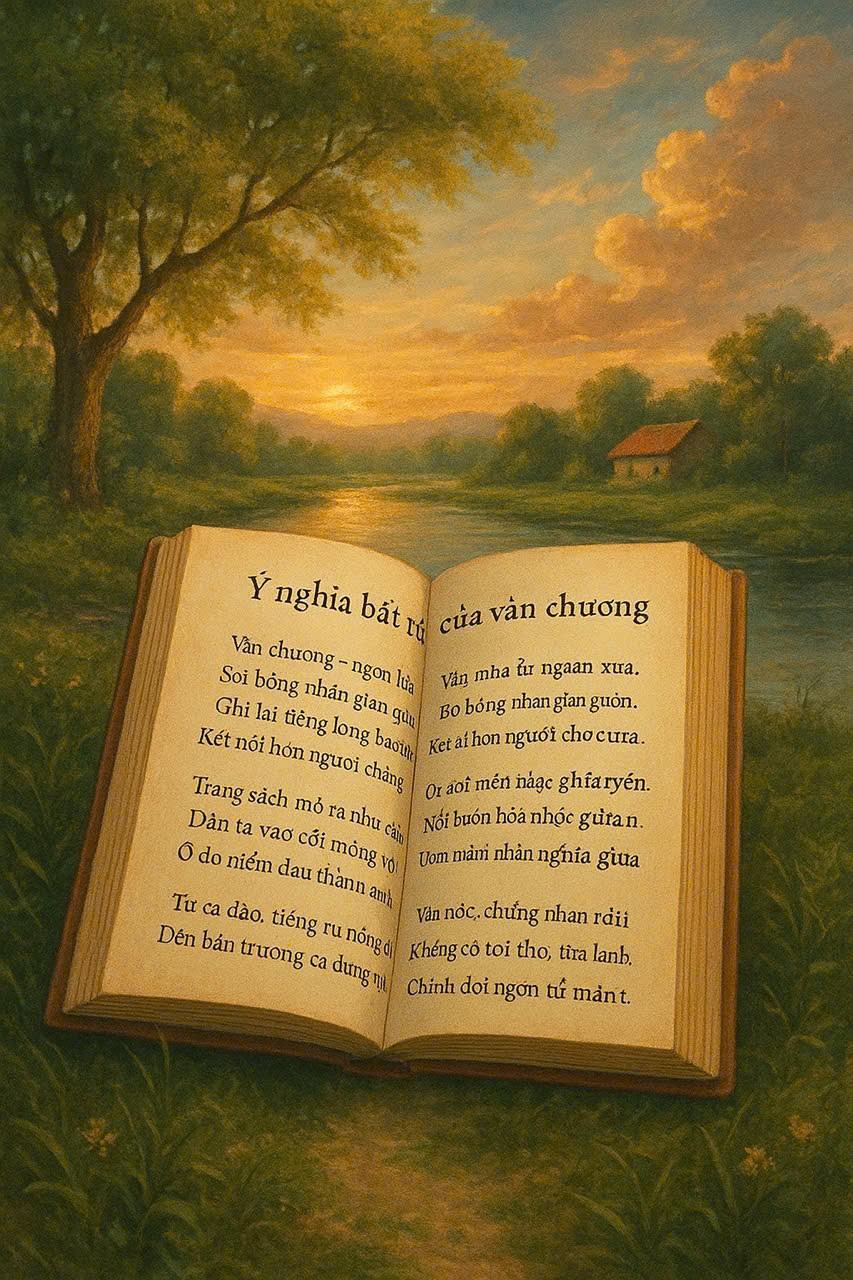 Ý nghia bất rủ của vằn chương
Vằn chuong – ngon lửa
Soi bông nhán gian qửu
Ghi lai tiêng long
Két nói hón nguoi chàng
Trang sách mỏ ra như
Dân ta vaơ cỡi mỏng
Ô do niểm dau thành anh
Tư ca dào. tiéng ru nóng
Dên bán truong ca dưng
Vắn mha ừ ngaan xưa.
Bo bóng nhan gian guôn.
Ket ái hon người cho cura.
Or aoî mén
Nổi buón hoá nhọc gửran.
Uom màni nhân nghía giua
Vân nóc,. chửng nhan rdii
Khéng cô toi tho, tira lanh.
Chinh doi ngơn tử mànt.